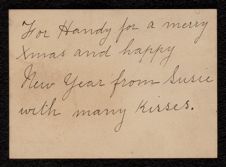 For Handy for a merry
Xmas and happy
New Year from Susie
with many kisses.